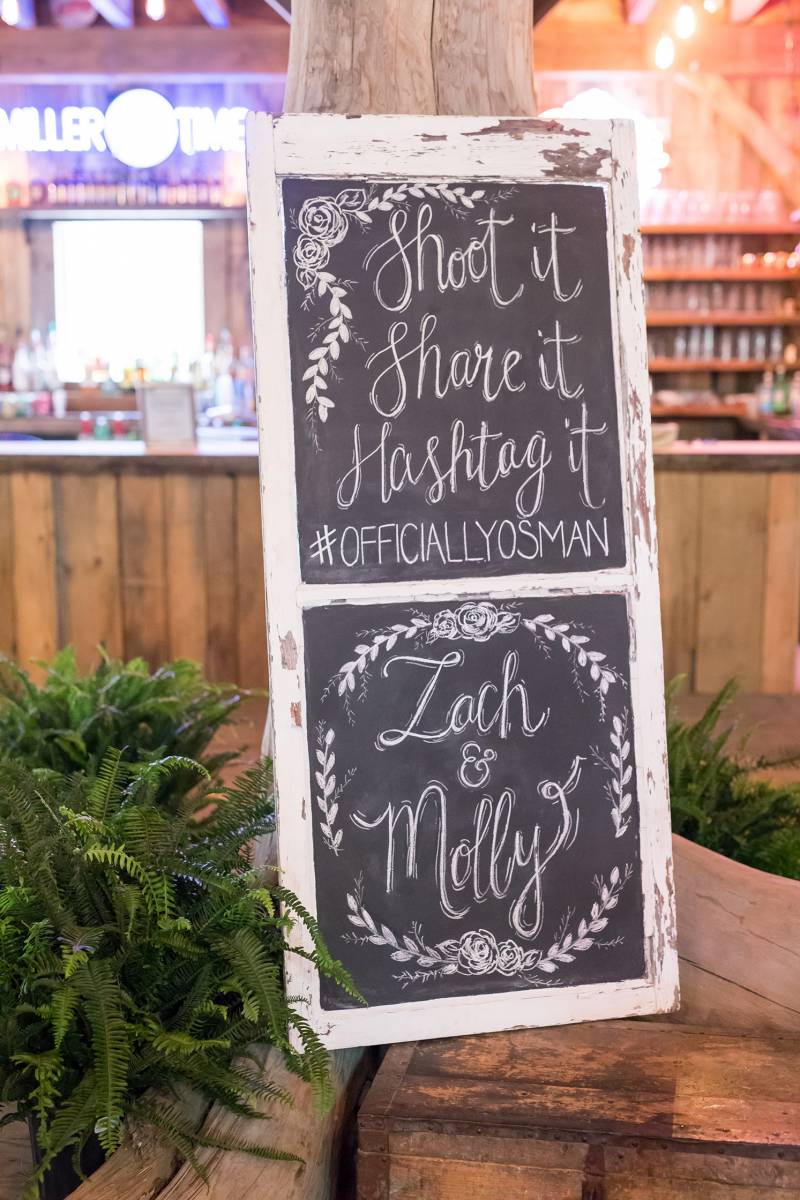 MILLER TIME
Shoot it
Share it
Hashtag it
#OFFICIALLYOSMAN
Zach
&
Molly